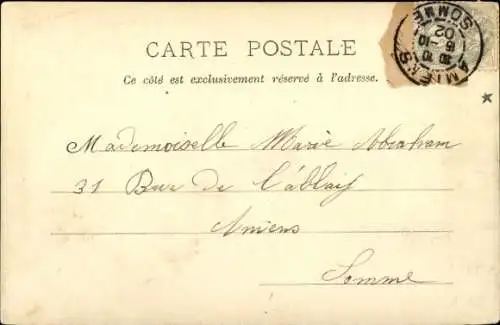 CARTE POSTALE
Ce côté est exclusivement réservé à l'adresse.
AMIENS
SOMME
10
02
Mademoiselle Marie Abraham
31 Rue de l'
Amiens
Somme